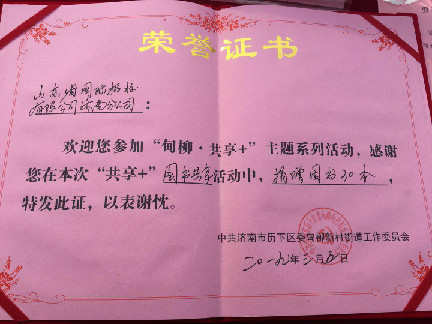 荣誉证书
山东省国
有限公司济南分公司：
欢迎您参加“甸柳·共享+”主题系列活动，感谢
您在本次“共享+”图书共享活动中，捐赠图书30本，
特发此证，以表谢忱。
中共济南市历下区委甸柳新村街道工作委员会
二〇一九年三月五日